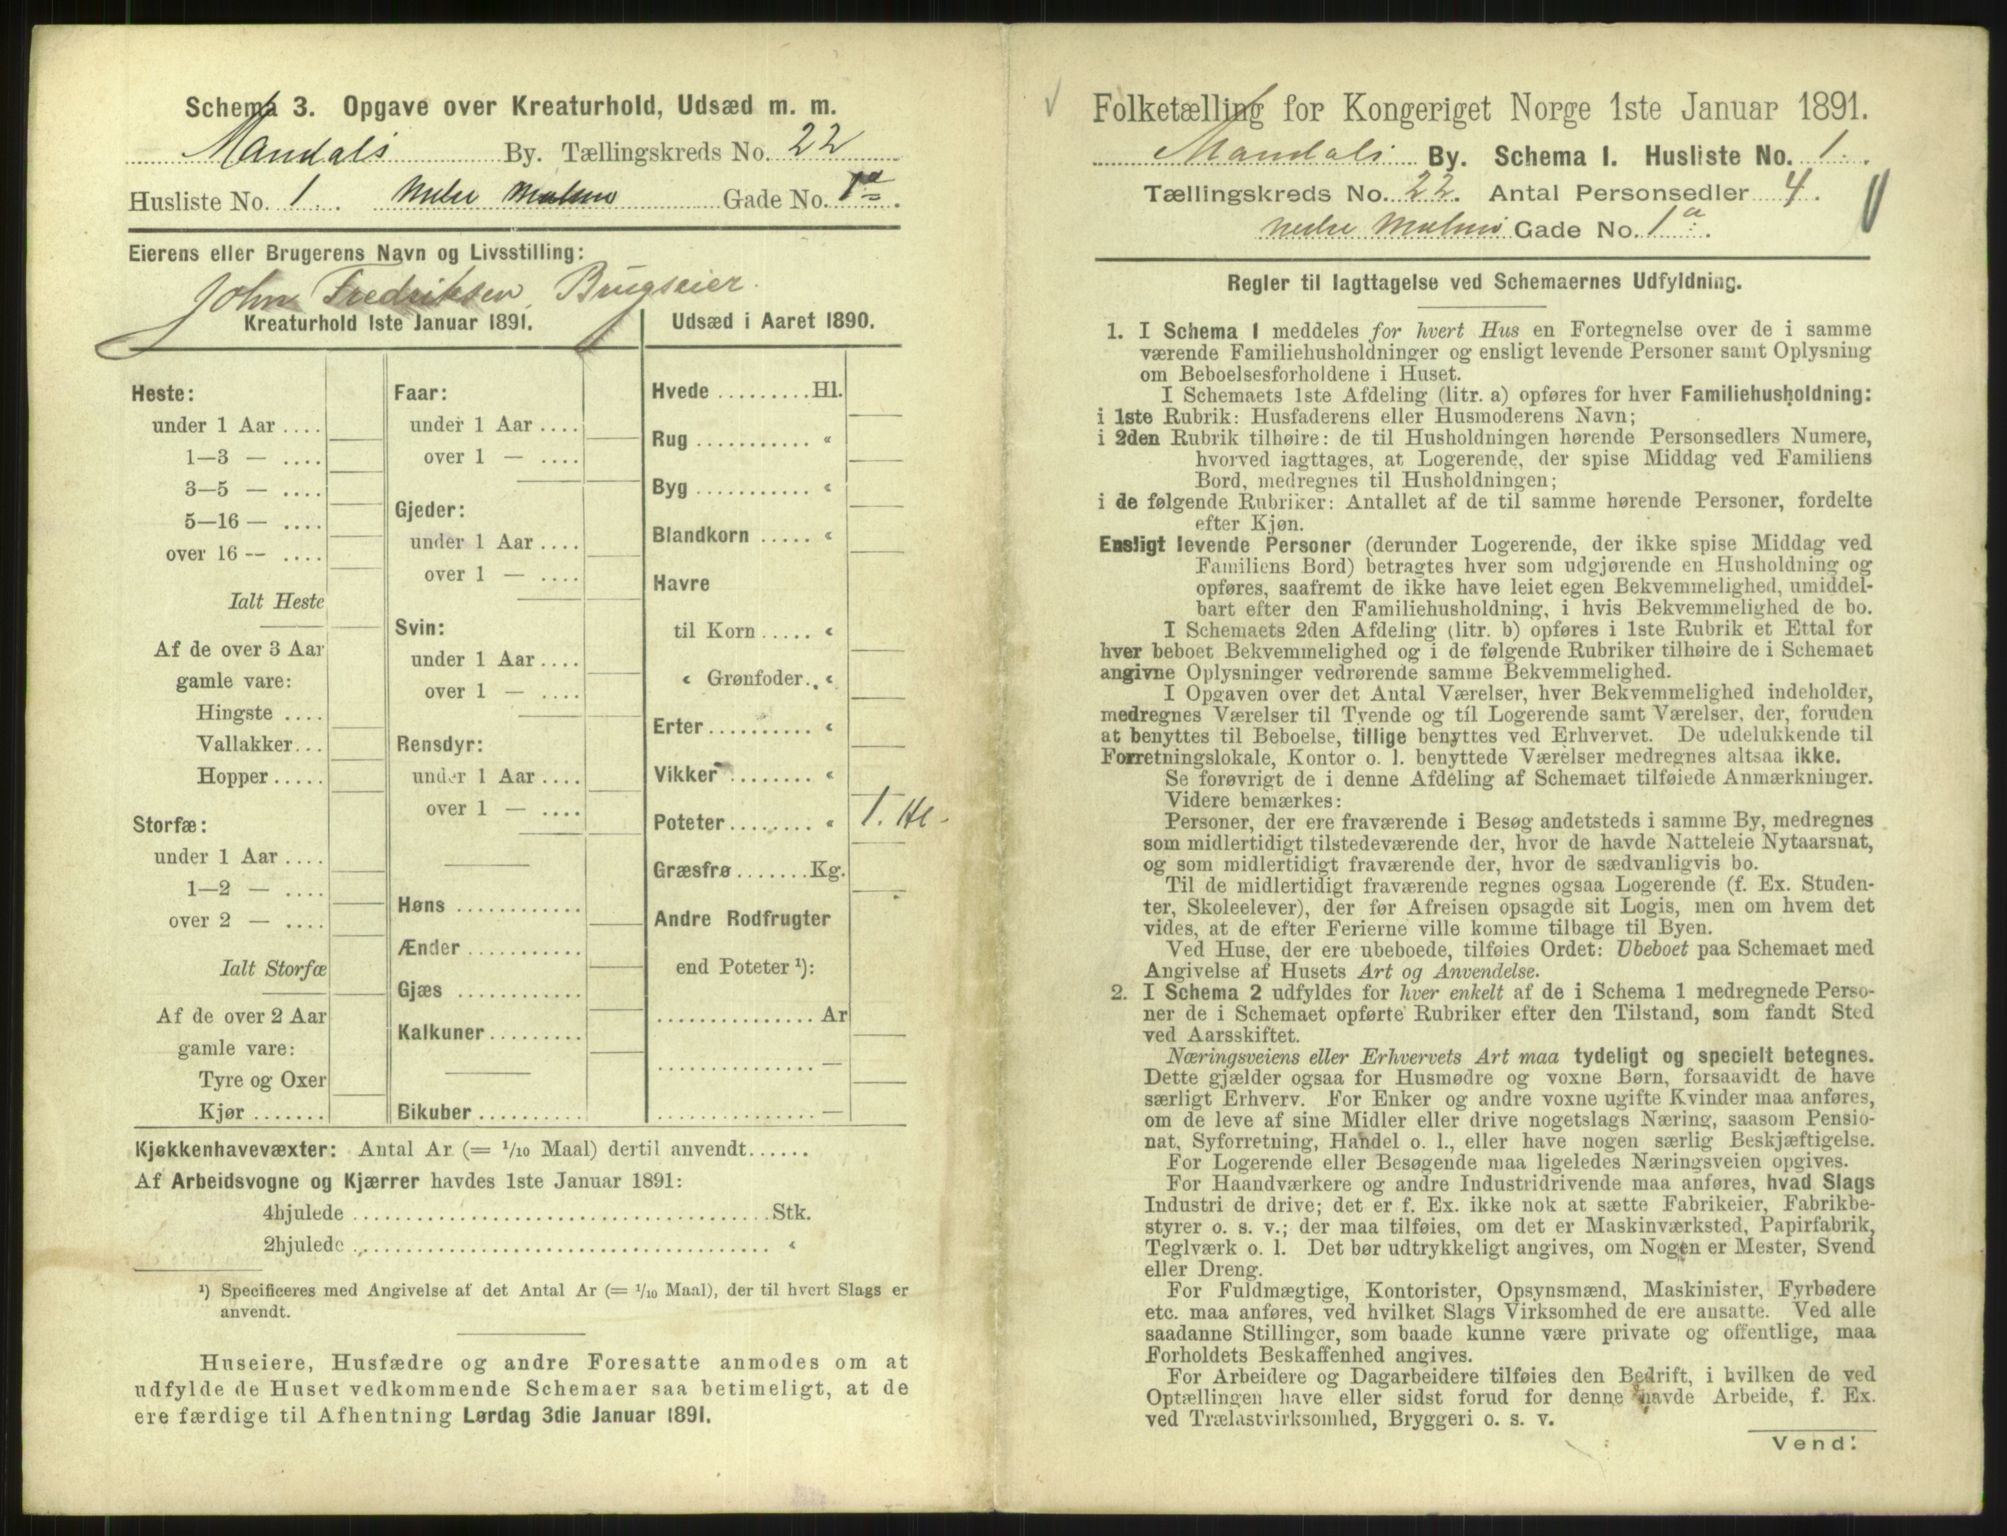 Schema 3. Opgave over Kreaturhold, Udsæd m. m.
Mandals By. Tællingskreds No. 22
Husliste No. 1. nedre Malmø Gade No. 1a.
Eierens eller Brugerens Navn og Livsstilling:
John Fredriksen, Brugseier.
Kreaturhold 1ste Januar 1891.
Heste:
under 1 Aar ....
1—3 — ....
3—5 — ....
5—16 — ....
over 16 — ....
Ialt Heste
Af de over 3 Aar
gamle vare:
Hingste ....
Vallakker...
Hopper .....
Storfæ:
under 1 Aar ....
1—2 — ....
over 2 — ....
Ialt Storfæ
Af de over 2 Aar
gamle vare:
Tyre og Oxer
Kjør .......
Faar:
under 1 Aar ....
over 1 — ....
Gjeder:
under 1 Aar ....
over 1 — ....
Svin:
under 1 Aar ....
over 1 — ....
Rensdyr:
under 1 Aar ....
over 1 — ....
Høns ............
Ænder ...........
Gjæs ............
Kalkuner.........
Bikuber ..........
Udsæd i Aaret 1890.
Hvede .........Hl.
Rug ........... «
Byg ........... «
Blandkorn ..... «
Havre
til Korn ..... «
« Grønfoder.. «
Erter.......... «
Vikker ........ «
Poteter........ « 1. Hl.
Græsfrø .......Kg.
Andre Rodfrugter
end Poteter ¹):
............... Ar
............... —
............... —
Kjøkkenhavevæxter: Antal Ar (= 1/10 Maal) dertil anvendt......
Af Arbeidsvogne og Kjærrer havdes 1ste Januar 1891:
4hjulede .....................................Stk.
2hjulede ..................................... «
¹) Specificeres med Angivelse af det Antal Ar (= 1/10 Maal), der til hvert Slags er
anvendt.
Huseiere, Husfædre og andre Foresatte anmodes om at
udfylde de Huset vedkommende Schemaer saa betimeligt, at de
ere færdige til Afhentning Lørdag 3die Januar 1891.
Folketælling for Kongeriget Norge 1ste Januar 1891.
Mandals By. Schema I. Husliste No. 1.
Tællingskreds No. 22. Antal Personsedler 4.
nedre Malmø Gade No. 1a.
Regler til Iagttagelse ved Schemaernes Udfyldning.
1. I Schema 1 meddeles for hvert Hus en Fortegnelse over de i samme
værende Familiehusholdninger og ensligt levende Personer samt Oplysning
om Beboelsesforholdene i Huset.
I Schemaets 1ste Afdeling (litr. a) opføres for hver Familiehusholdning:
i 1ste Rubrik: Husfaderens eller Husmoderens Navn;
i 2den Rubrik tilhøire: de til Husholdningen hørende Personsedlers Numere,
hvorved iagttages, at Logerende, der spise Middag ved Familiens
Bord, medregnes til Husholdningen;
i de følgende Rubriker: Antallet af de til samme hørende Personer, fordelte
efter Kjøn.
Ensligt levende Personer (derunder Logerende, der ikke spise Middag ved
Familiens Bord) betragtes hver som udgjørende en Husholdning og
opføres, saafremt de ikke have leiet egen Bekvemmelighed, umiddel-
bart efter den Familiehusholdning, i hvis Bekvemmelighed de bo.
I Schemaets 2den Afdeling (litr. b) opføres i 1ste Rubrik et Ettal for
hver beboet Bekvemmelighed og i de følgende Rubriker tilhøire de i Schemaet
angivne Oplysninger vedrørende samme Bekvemmelighed.
I Opgaven over det Antal Værelser, hver Bekvemmelighed indeholder,
medregnes Værelser til Tyende og til Logerende samt Værelser, der, foruden
at benyttes til Beboelse, tillige benyttes ved Erhvervet. De udelukkende til
Forretningslokale, Kontor o. l. benyttede Værelser medregnes altsaa ikke.
Se forøvrigt de i denne Afdeling af Schemaet tilføiede Anmærkninger.
Videre bemærkes:
Personer, der ere fraværende i Besøg andetsteds i samme By, medregnes
som midlertidigt tilstedeværende der, hvor de havde Natteleie Nytaarsnat,
og som midlertidigt fraværende der, hvor de sædvanligvis bo.
Til de midlertidigt fraværende regnes ogsaa Logerende (f. Ex. Studen-
ter, Skoleelever), der før Afreisen opsagde sit Logis, men om hvem det
vides, at de efter Ferierne ville komme tilbage til Byen.
Ved Huse, der ere ubeboede, tilføies Ordet: Ubeboet paa Schemaet med
Angivelse af Husets Art og Anvendelse.
2. I Schema 2 udfyldes for hver enkelt af de i Schema 1 medregnede Perso-
ner de i Schemaet opførte Rubriker efter den Tilstand, som fandt Sted
ved Aarsskiftet.
Næringsveiens eller Erhvervets Art maa tydeligt og specielt betegnes.
Dette gjælder ogsaa for Husmødre og voxne Børn, forsaavidt de have
særligt Erhverv. For Enker og andre voxne ugifte Kvinder maa anføres,
om de leve af sine Midler eller drive nogetslags Næring, saasom Pensio-
nat, Syforretning, Handel o. l., eller have nogen særlig Beskjæftigelse.
For Logerende eller Besøgende maa ligeledes Næringsveien opgives.
For Haandværkere og andre Industridrivende maa anføres, hvad Slags
Industri de drive; det er f. Ex. ikke nok at sætte Fabrikeier, Fabrikbe-
styrer o. s. v.; der maa tilføies, om det er Maskinværksted, Papirfabrik,
Teglværk o. l. Det bør udtrykkeligt angives, om Nogen er Mester, Svend
eller Dreng.
For Fuldmægtige, Kontorister, Opsynsmænd, Maskinister, Fyrbødere
etc. maa anføres, ved hvilket Slags Virksomhed de ere ansatte. Ved alle
saadanne Stillinger, som baade kunne være private og offentlige, maa
Forholdets Beskaffenhed angives.
For Arbeidere og Dagarbeidere tilføies den Bedrift, i hvilken de ved
Optællingen have eller sidst forud for denne havde Arbeide, f. Ex.
ved Trælastvirksomhed, Bryggeri o. s. v.
Vend: